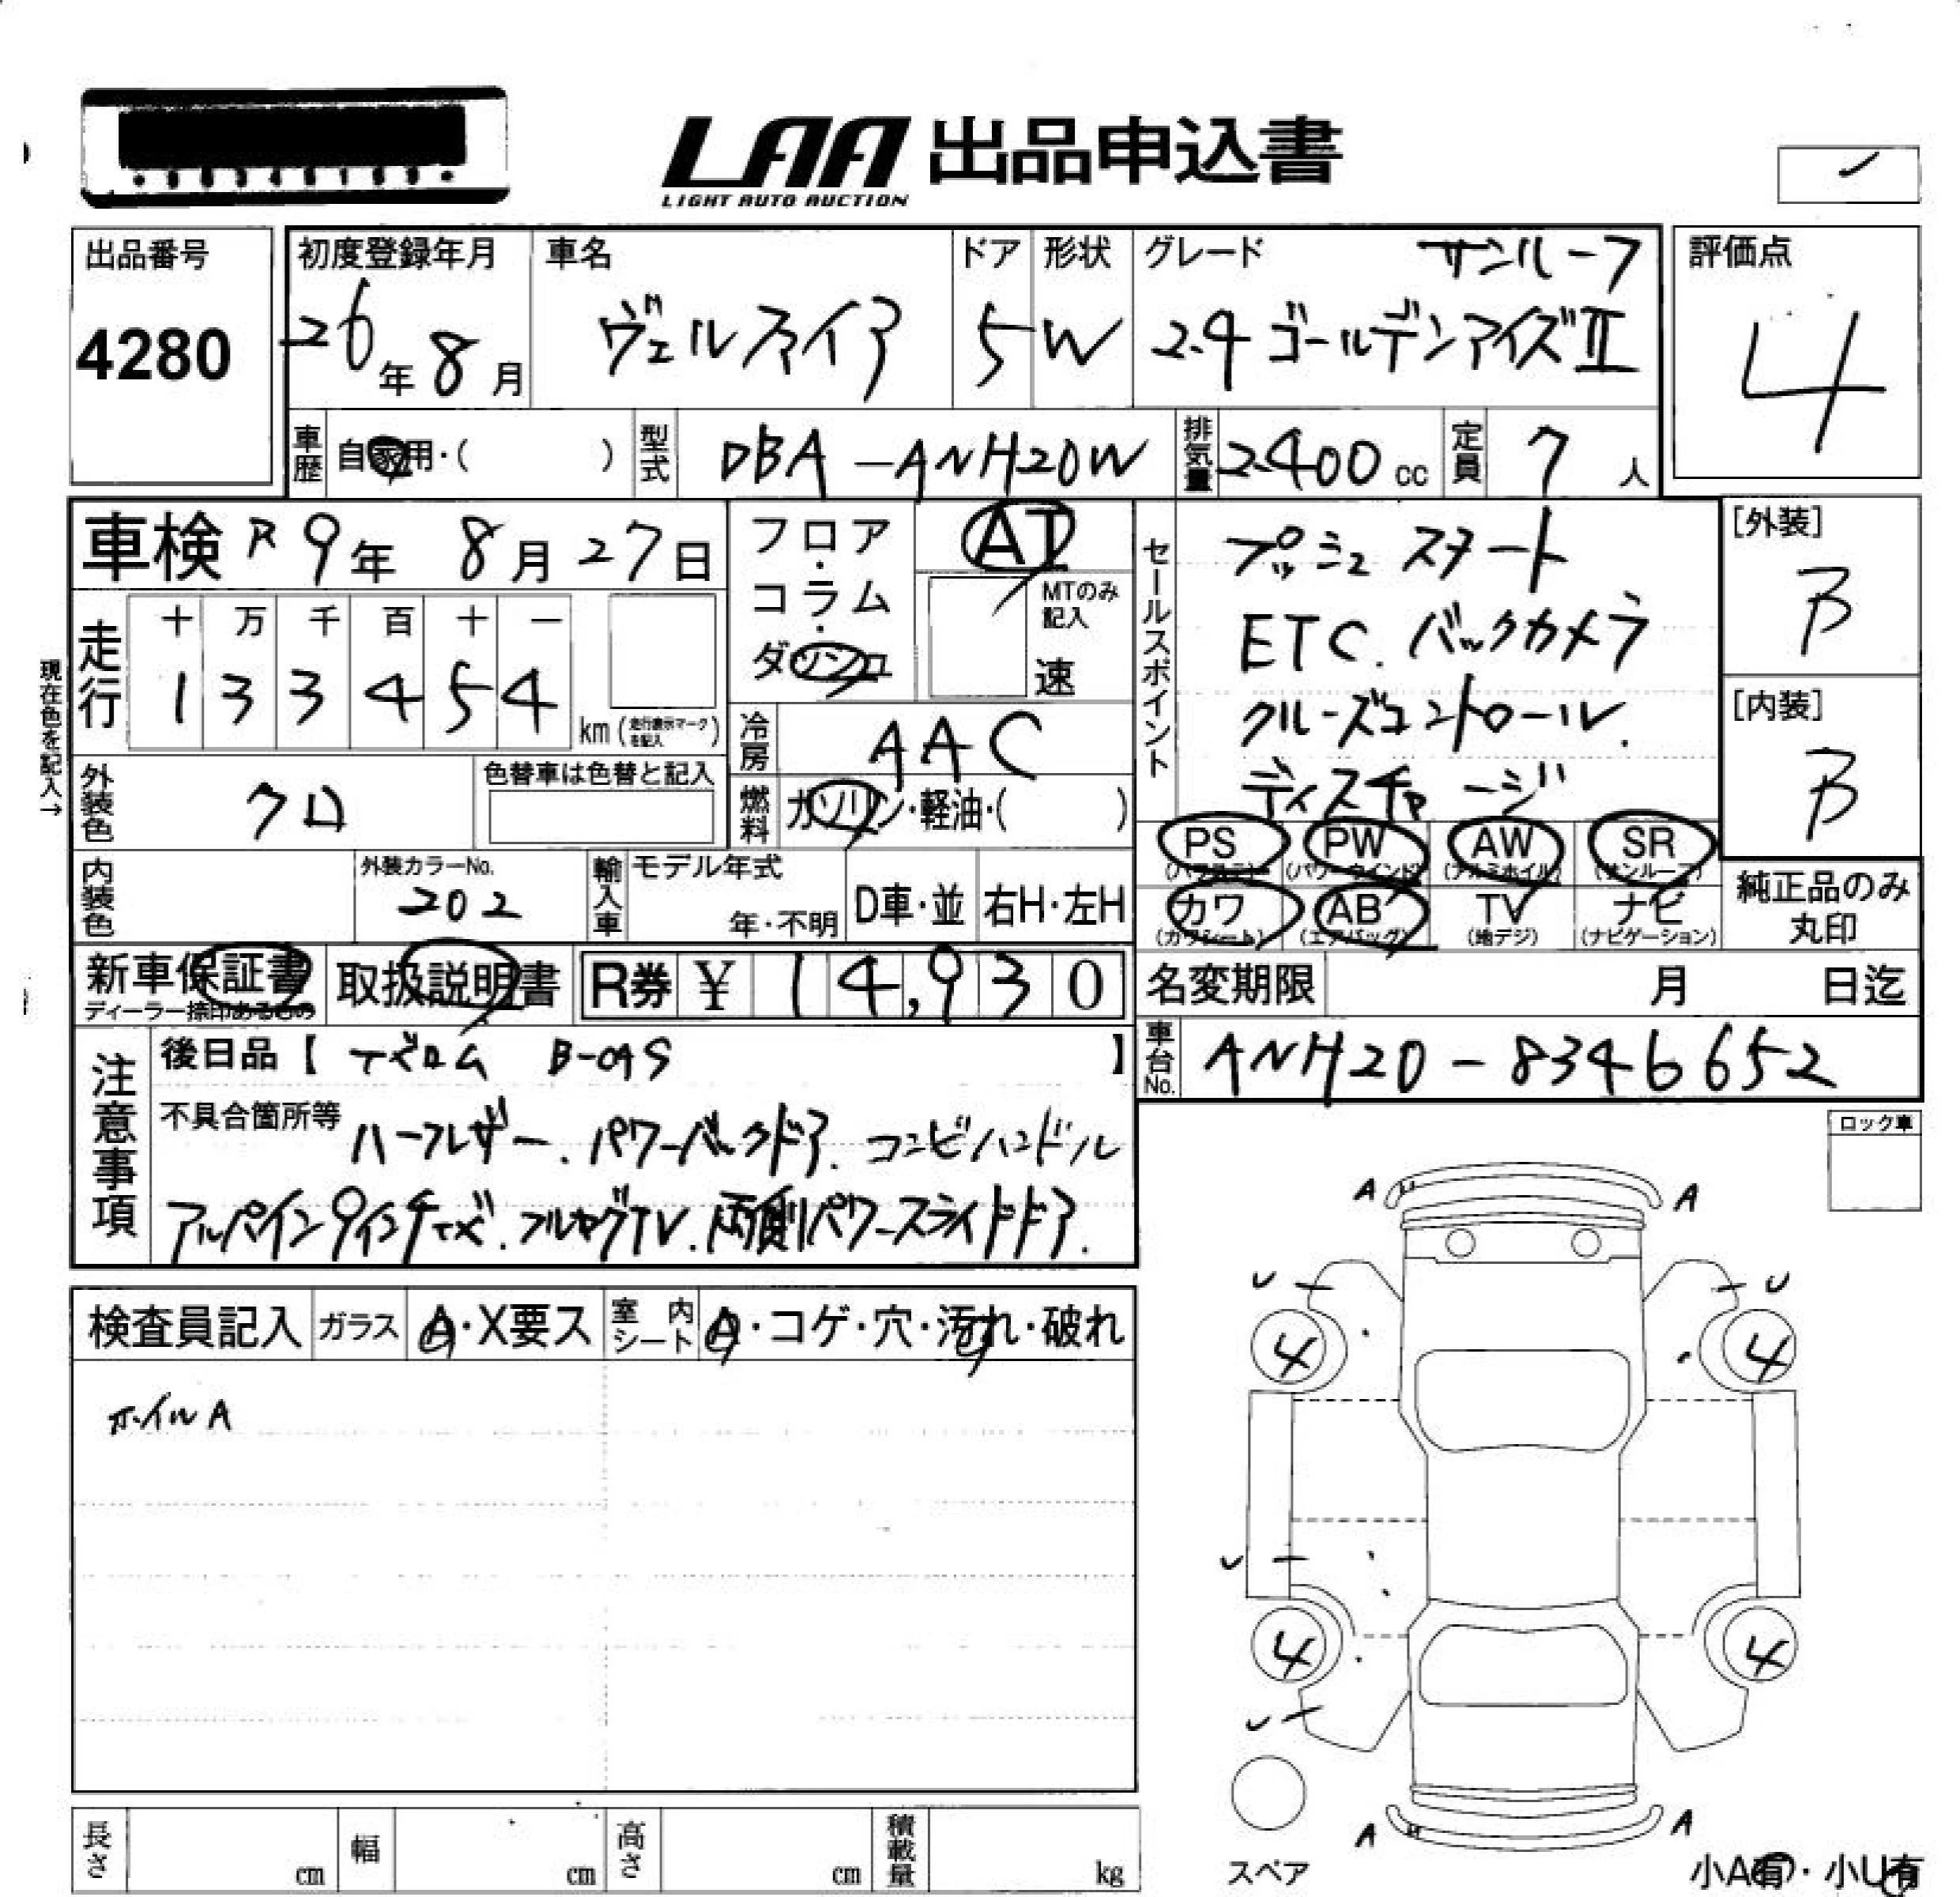 LAA 出品申込書
LIGHT AUTO AUCTION
出品番号
4280
初度登録年月
26年 8月
車名
ヴェルファイア
ドア
5
形状
W
グレード サンルーフ
2.4 ゴールデンアイズⅡ
評価点
4
車歴 自家用・( )
型式 DBA-ANH20W
排気量 2400 cc
定員 7 人
車検 R9年 8月27日
フロア・コラム・ダッシュ
AT
MTのみ記入
速
走行
十 万 千 百 十 一
1 3 3 4 5 4
km (走行表示マークを記入)
現在色を記入→
外装色 クロ
色替車は色替と記入
冷房 AAC
燃料 ガソリン・軽油・( )
セールスポイント
プッシュスタート
ETC. バックカメラ
クルーズコントロール.
ディスチャージ
[外装]
B
[内装]
B
PS (パワステ)
PW (パワーウインド)
AW (アルミホイル)
SR (サンルーフ)
カワ (カワシート)
AB (エアバッグ)
TV (地デジ)
ナビ (ナビゲーション)
純正品のみ
丸印
内装色
外装カラーNo.
202
輸入車
モデル年式
年・不明
D車・並
右H・左H
新車保証書
ディーラー捺印あるもの
取扱説明書
R券 ¥ 14,930
名変期限 月 日迄
車台No. ANH20-8346652
注意事項
後日品【 B-CAS 】
不具合箇所等 ハーフレザー. パワーバックドア. コンビハンドル
アルパイン 9インチナビ. フルセグTV. 両側パワースライドドア.
ロック車
検査員記入
ガラス A・X要ス
室内シート A・コゲ・穴・汚れ・破れ
ホイルA
A A
U U
4 4
U
4 4
U
A A
スペア
小A有・小U有
長さ cm
幅 cm
高さ cm
積載量 kg